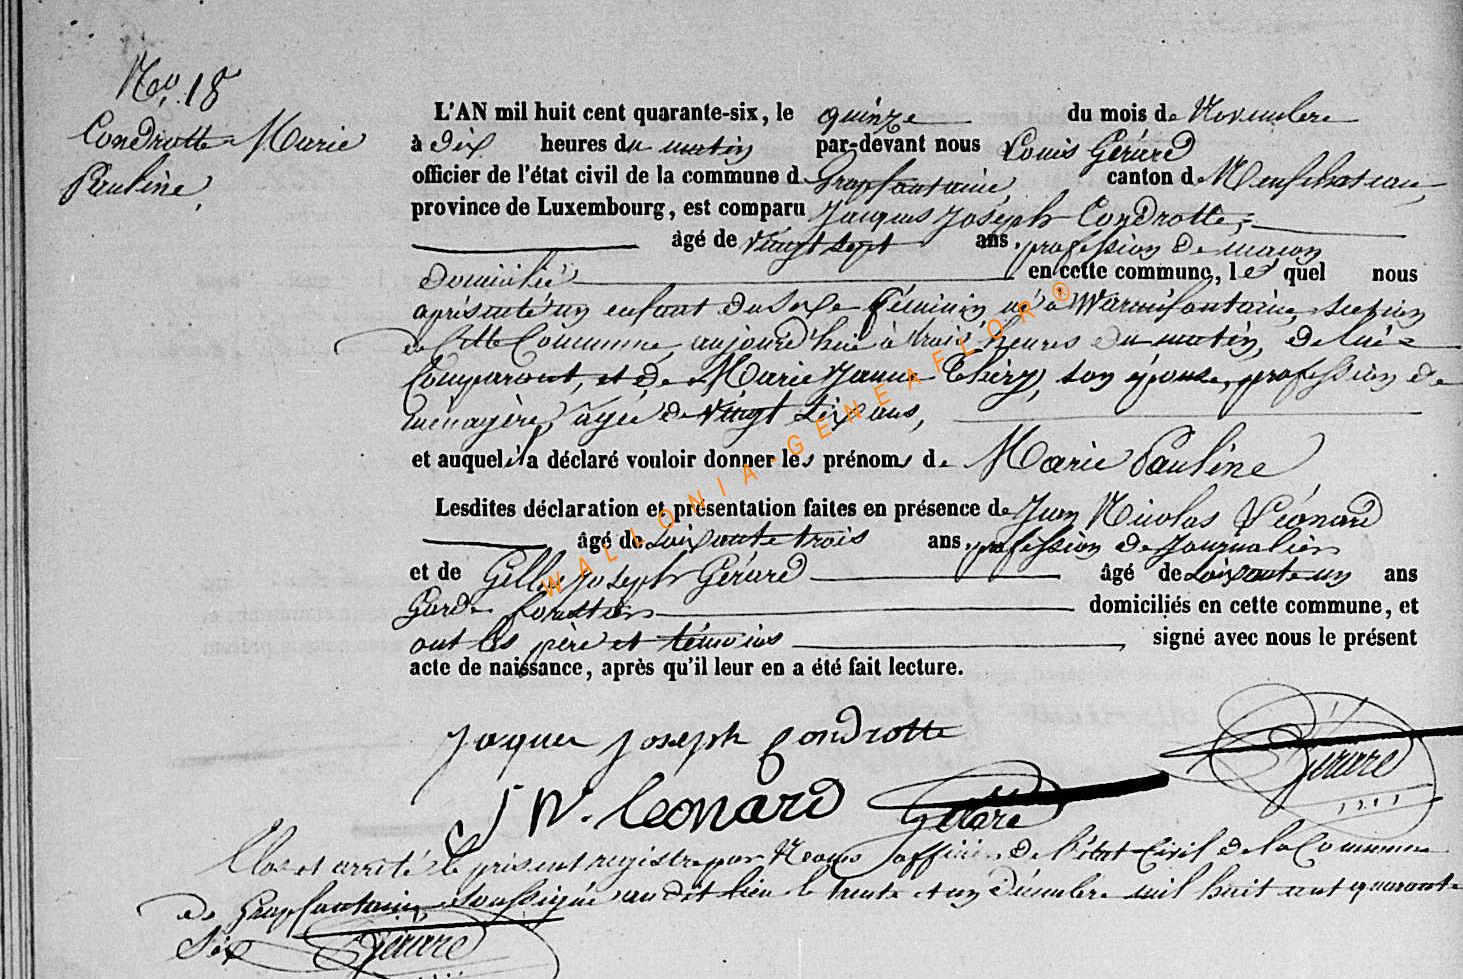 No. 18
Condrotte Marie
Pauline,
L'AN mil huit cent quarante-six, le quinze du mois de Novembre
à dix heures du matin par-devant nous Louis Gérard
officier de l'état civil de la commune d Grapfontaine, canton de Neufchateau,
province de Luxembourg, est comparu Jacques Joseph Condrotte,
âgé de vingt sept ans, profession de maçon
domicilié en cette commune, lequel nous
a présenté un enfant du sexe féminin né à Warmifontaine, section
de cette Commune, aujourd'hui à trois heures du matin, de lui
Comparant, et de Marie Jeanne Thiry, son épouse, profession de
ménagère, agée de vingt six ans,
et auquel il a déclaré vouloir donner les prénoms de Marie Pauline
Lesdites déclaration et présentation faites en présence de Jean Nicolas Léonard
âgé de soixante trois ans, profession de Journalier
et de Gille Joseph Gérard âgé de soixante un ans
Garde forestier domiciliés en cette commune, et
ont les père et témoins signé avec nous le présent
acte de naissance, après qu'il leur en a été fait lecture.
Jaques Joseph Condrotte
J N. Leonard Gérard Gérard
Clos et arrêté le présent registre par Nous officier de l'état Civil de la Commune
de Grapfontaine soussigné au dit lieu le trente et un Décembre mil huit cent quarante
six Gérard
WALLONIA-GENEAFLOR®